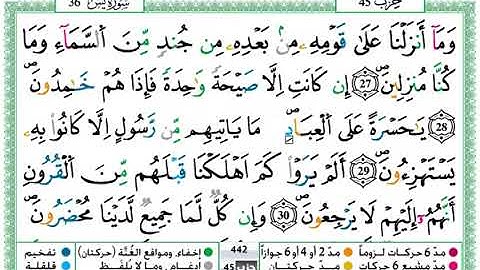 حزب 45 سورة يس 36
وَمَآ أَنزَلْنَا عَلَىٰ قَوْمِهِۦ مِنۢ بَعْدِهِۦ مِن جُندٍ مِّنَ ٱلسَّمَآءِ وَمَا
كُنَّا مُنزِلِينَ 27 إِن كَانَتِ اِلَّا صَيْحَةً وَٰحِدَةً فَإِذَا هُمْ خَٰمِدُونَ
28 يَٰحَسْرَةً عَلَى ٱلْعِبَادِ مَا يَاتِيهِم مِّن رَّسُولٍ اِلَّا كَانُوا۟ بِهِۦ
يَسْتَهْزِءُونَ 29 أَلَمْ يَرَوْا۟ كَمَ اَهْلَكْنَا قَبْلَهُم مِّنَ ٱلْقُرُونِ
أَنَّهُمُۥٓ إِلَيْهِمْ لَا يَرْجِعُونَ 30 وَإِن كُلٌّ لَّمَا جَمِيعٌ لَّدَيْنَا مُحْضَرُونَ
مدّ 6 حركات لزوماً مدّ 2 أو 4 أو 6 جوازاً 442 إخفاء، ومواقع الغُنَّة (حركتان) تفخيم
مدّ مشبع 6 حركات مدّ حركتان إدغام، وما لا يُلفظ قلقلة